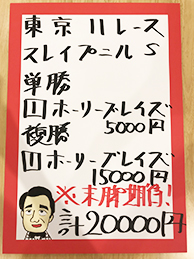 東京11レース
スレイプニルS
単勝
11ホーリーブレイズ
5000円
複勝
11ホーリーブレイズ
15000円
※末脚期待!
計20000円